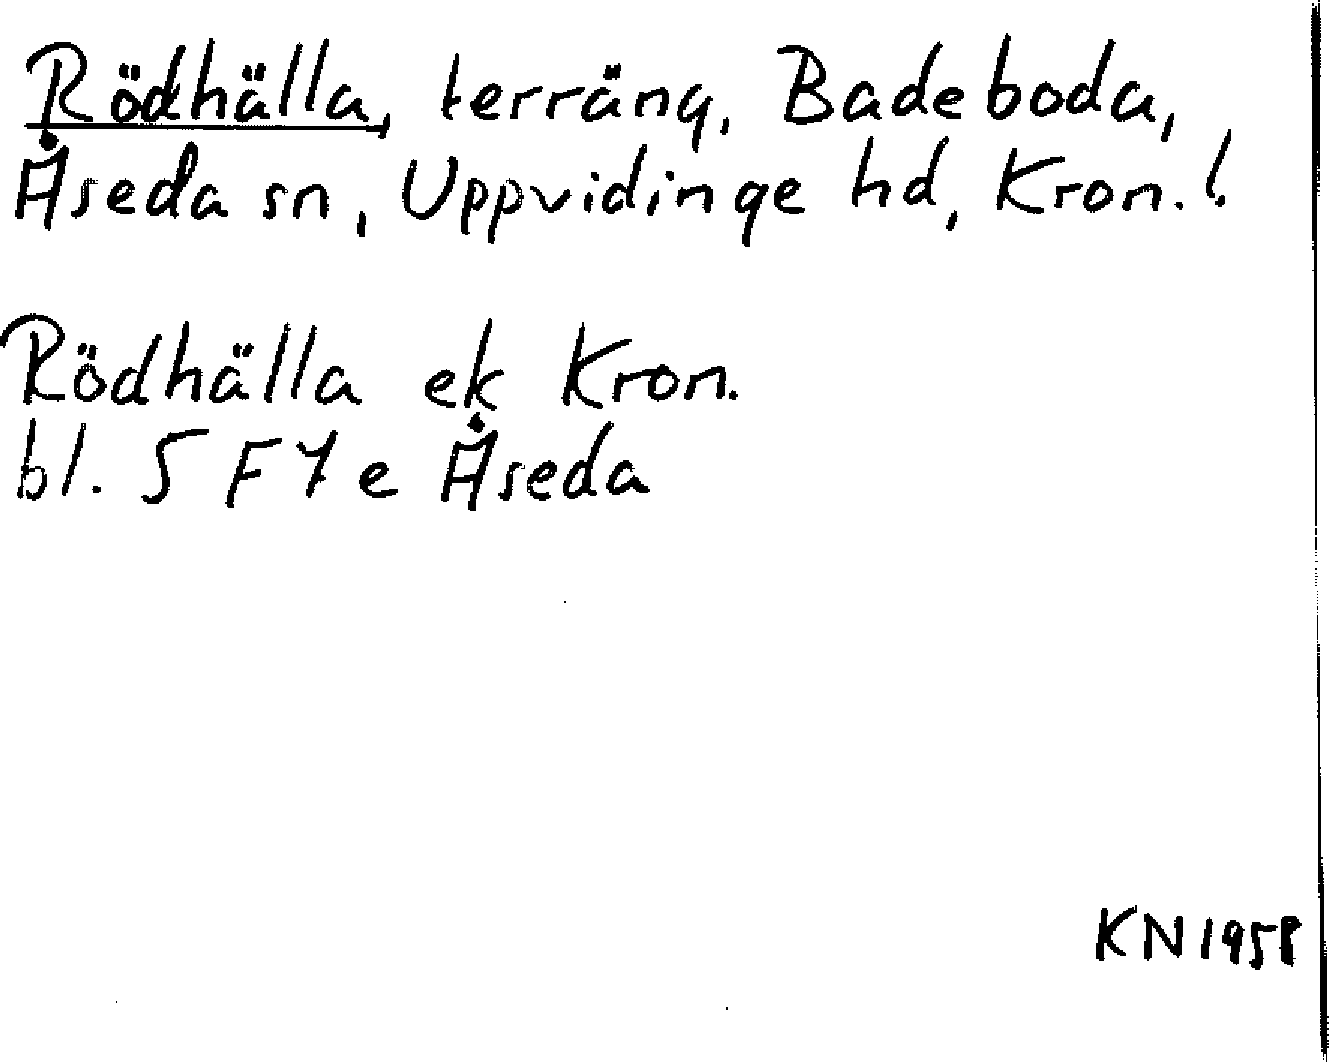 Rödhälla, terräng, Badeboda,
Åseda sn, Uppvidinge hd, Kron. l.
Rödhälla ek Kron.
bl. 5 F 7 e Åseda
KN 1958